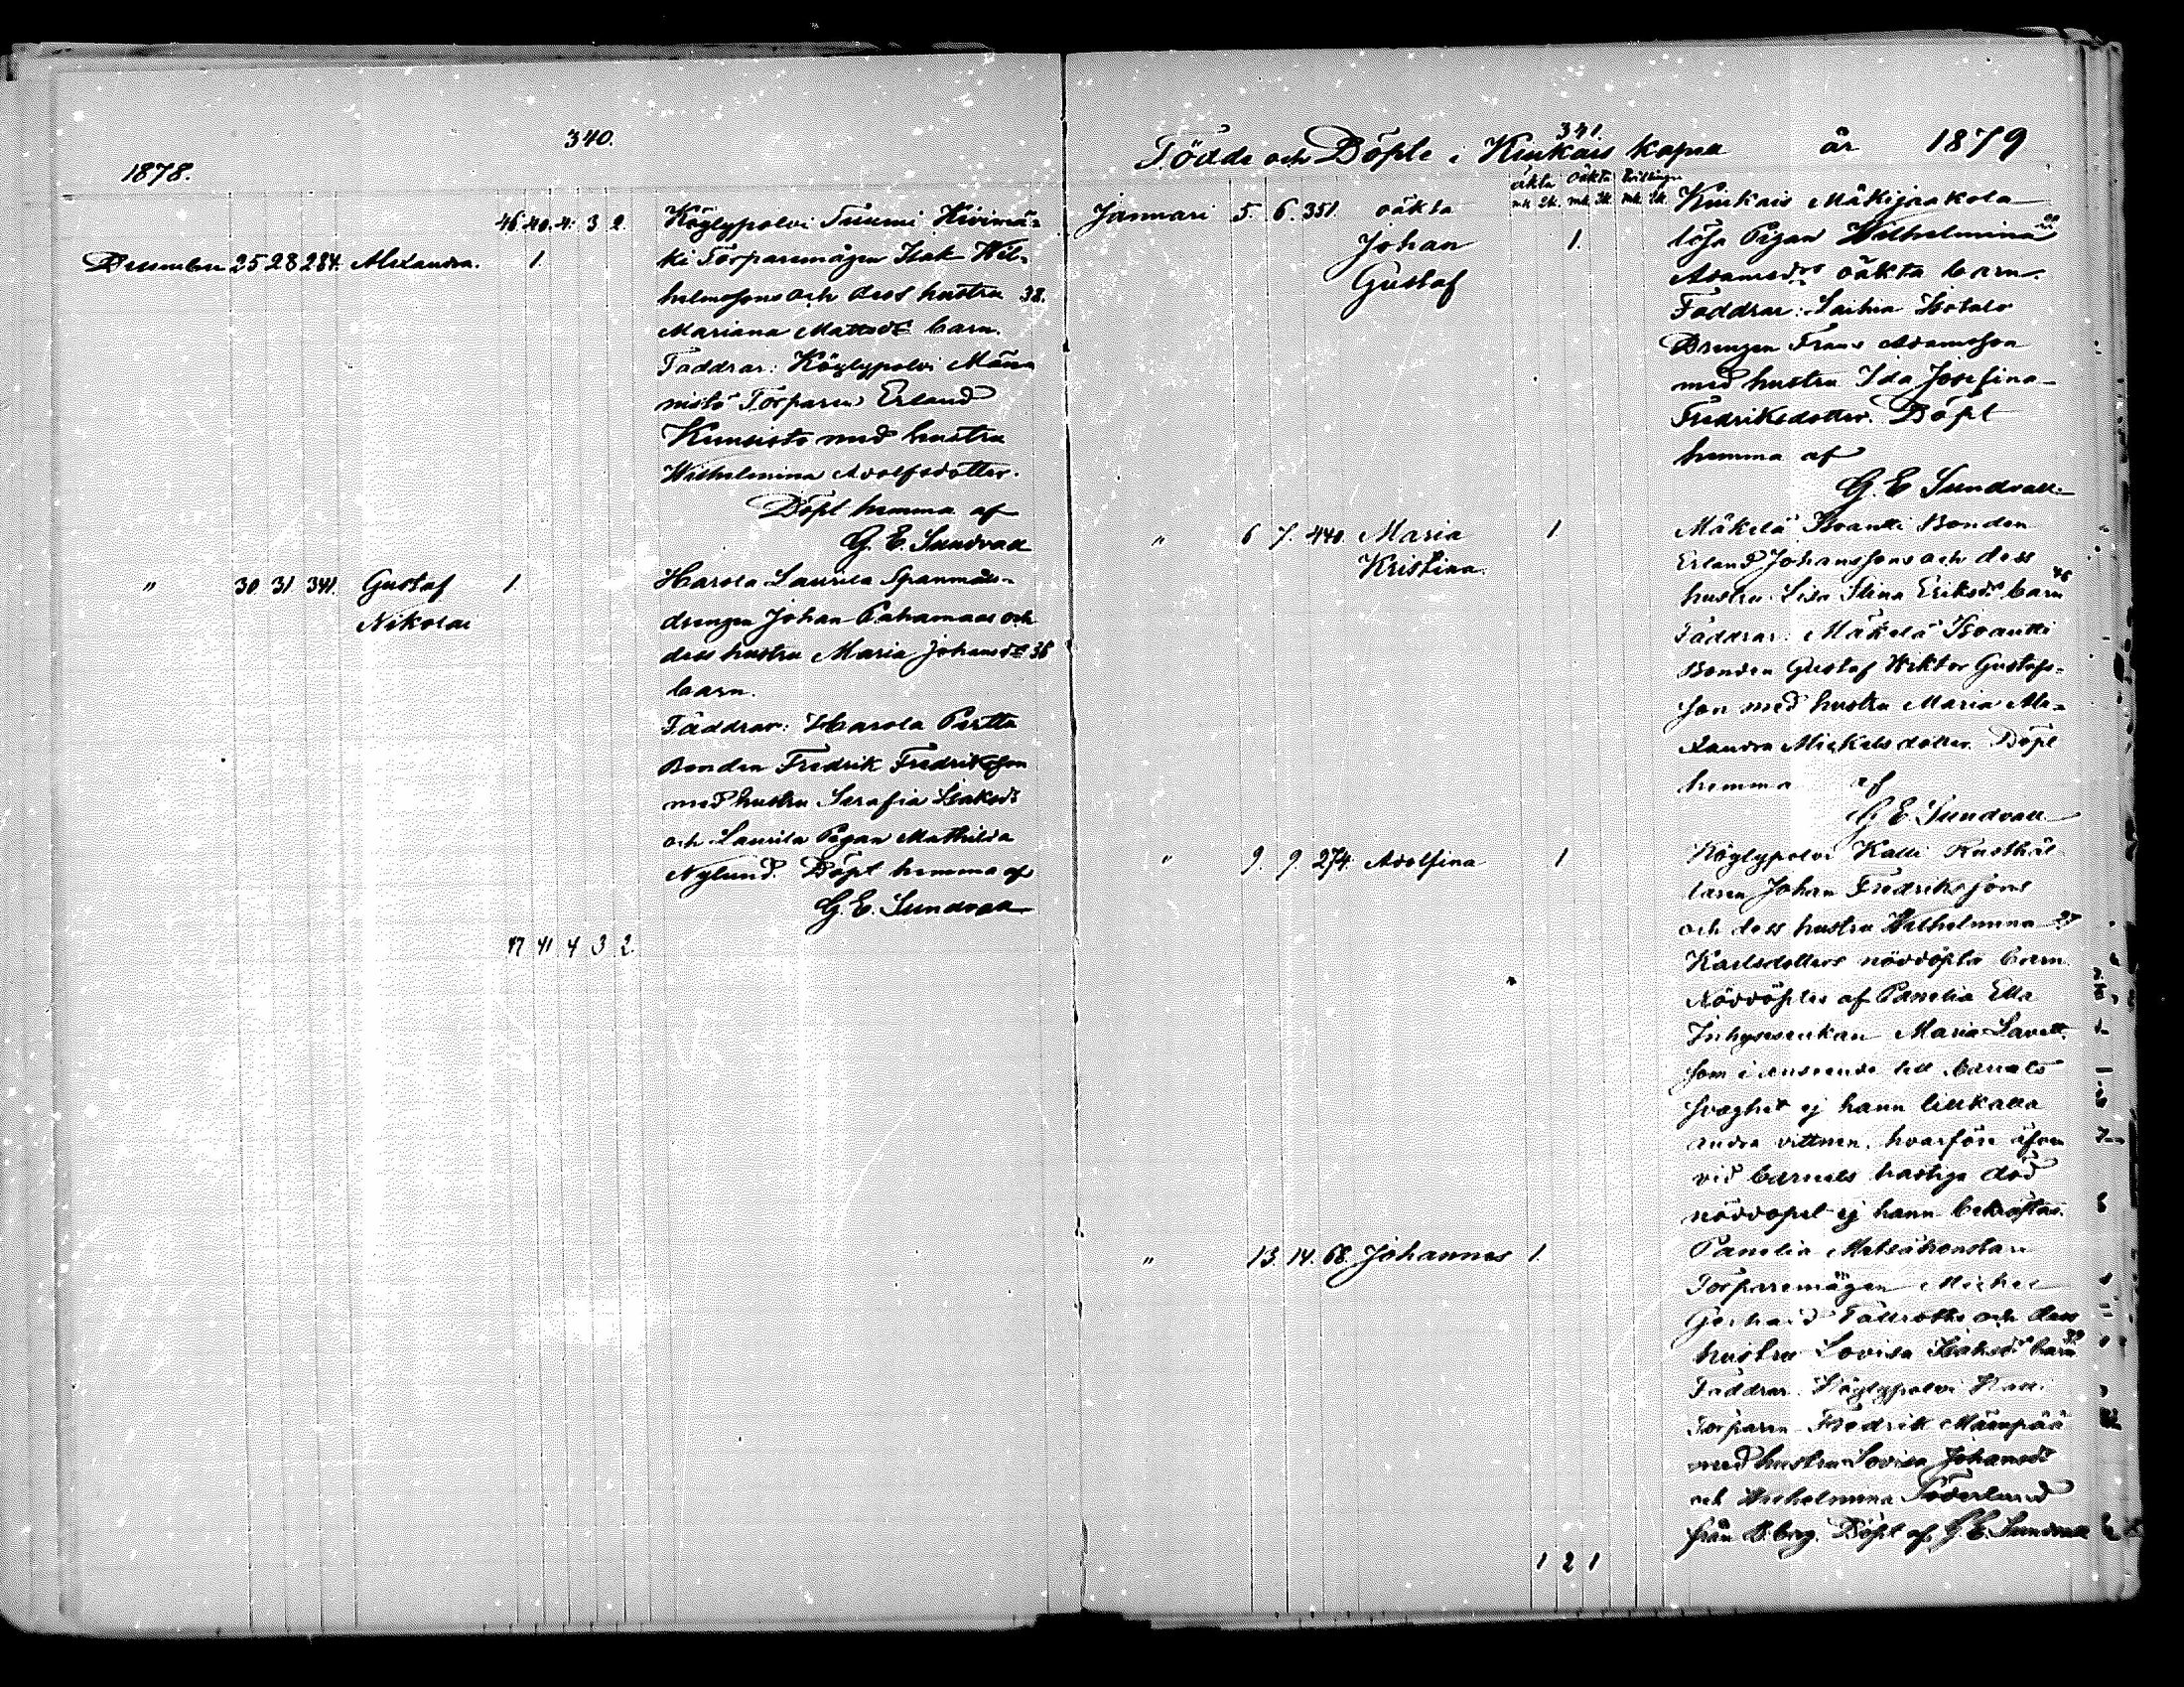 340.
1878.
46. 40. 4. 3 2.
Köylypolvi Tuumi Kivimä-
December 25 28 284. Alexandra. 1.
ki Torparemågen Isak Wil-
helmssons och dess hustru 38.
Mariana Mattsdr barn.
Faddrar: Köylypolvi Männ
nistö Torparen Erland
Kuusisto med hustru
Wilhelmina Adolfsdotter.
Döpt hemma af
G. E. Sundvall
" 30 31 341. Gustaf 1.
Nikolai
Harola Laurila Spanmåls-
drengen Johan Pahamaas och
dess hustru Maria Johansdr 36
barn.
Faddrar: Harola Perttu
Bonden Fredrik Fredriksson
med hustru Serafia Isaksdr
och Laurila Pigan Mathilda
Nylund. Döpt hemma af
G. E. Sundvall
47 41 4 3 2.
341.
Födde och Döpte i Kiukais kapell år 1879
äkta oäkta Tvillingar
mk. qk. mk. qk. mk. qk.
Januari 5. 6. 351. oäkta
Johan 1.
Gustaf
Kiukais Mäkijaakola
lösa Pigan Wilhelmina
Adamsdrs oäkta barn.
Faddrar: Laihia Isotalo
Drengen Frans Adamsson
med hustru Ida Josefina
Fredriksdotter. Döpt
hemma af
G. E. Sundvall
" 6 7. 440. Maria 1
Kristina.
Mäkelä Iso Antti Bonden
Erland Johanssons och dess
hustru Lisa Stina Eriksdrs barn
Faddrar: Mäkelä Iso Antti
Bonden Gustaf Wiktor Gustafs-
son med hustru Maria Ale-
xandra Mickelsdotter. Döpt
hemma af
G. E. Sundvall
" 9. 9. 274. Adolfina 1
Köylypolvi Kalli Rusthål-
laren Johan Fredrikssons
och dess hustru Wilhelmina
Karlsdotters nöddöpta barn.
Nöddöptes af Panelia Ella
Inhysesenkan Maria
som i anseende till barnets
svaghet ej hann tillkalla
andra vittnen, hvarföre äfven
vid barnets hastiga död
nöddopet ej hann bekräftas.
" 13. 14. 68. Johannes 1.
Panelia
Torparemågen Michel
Gerhard Tallroths och dess
hustru Lovisa Isaksdrs barn
Faddrar: Köylypolvi Kalli
Torparen Fredrik Mäenpää
med hustru Lovisa Johansdr
och Wilhelmina Söderlund
från B:borg. Döpt af G. E. Sundvall
1 2 1